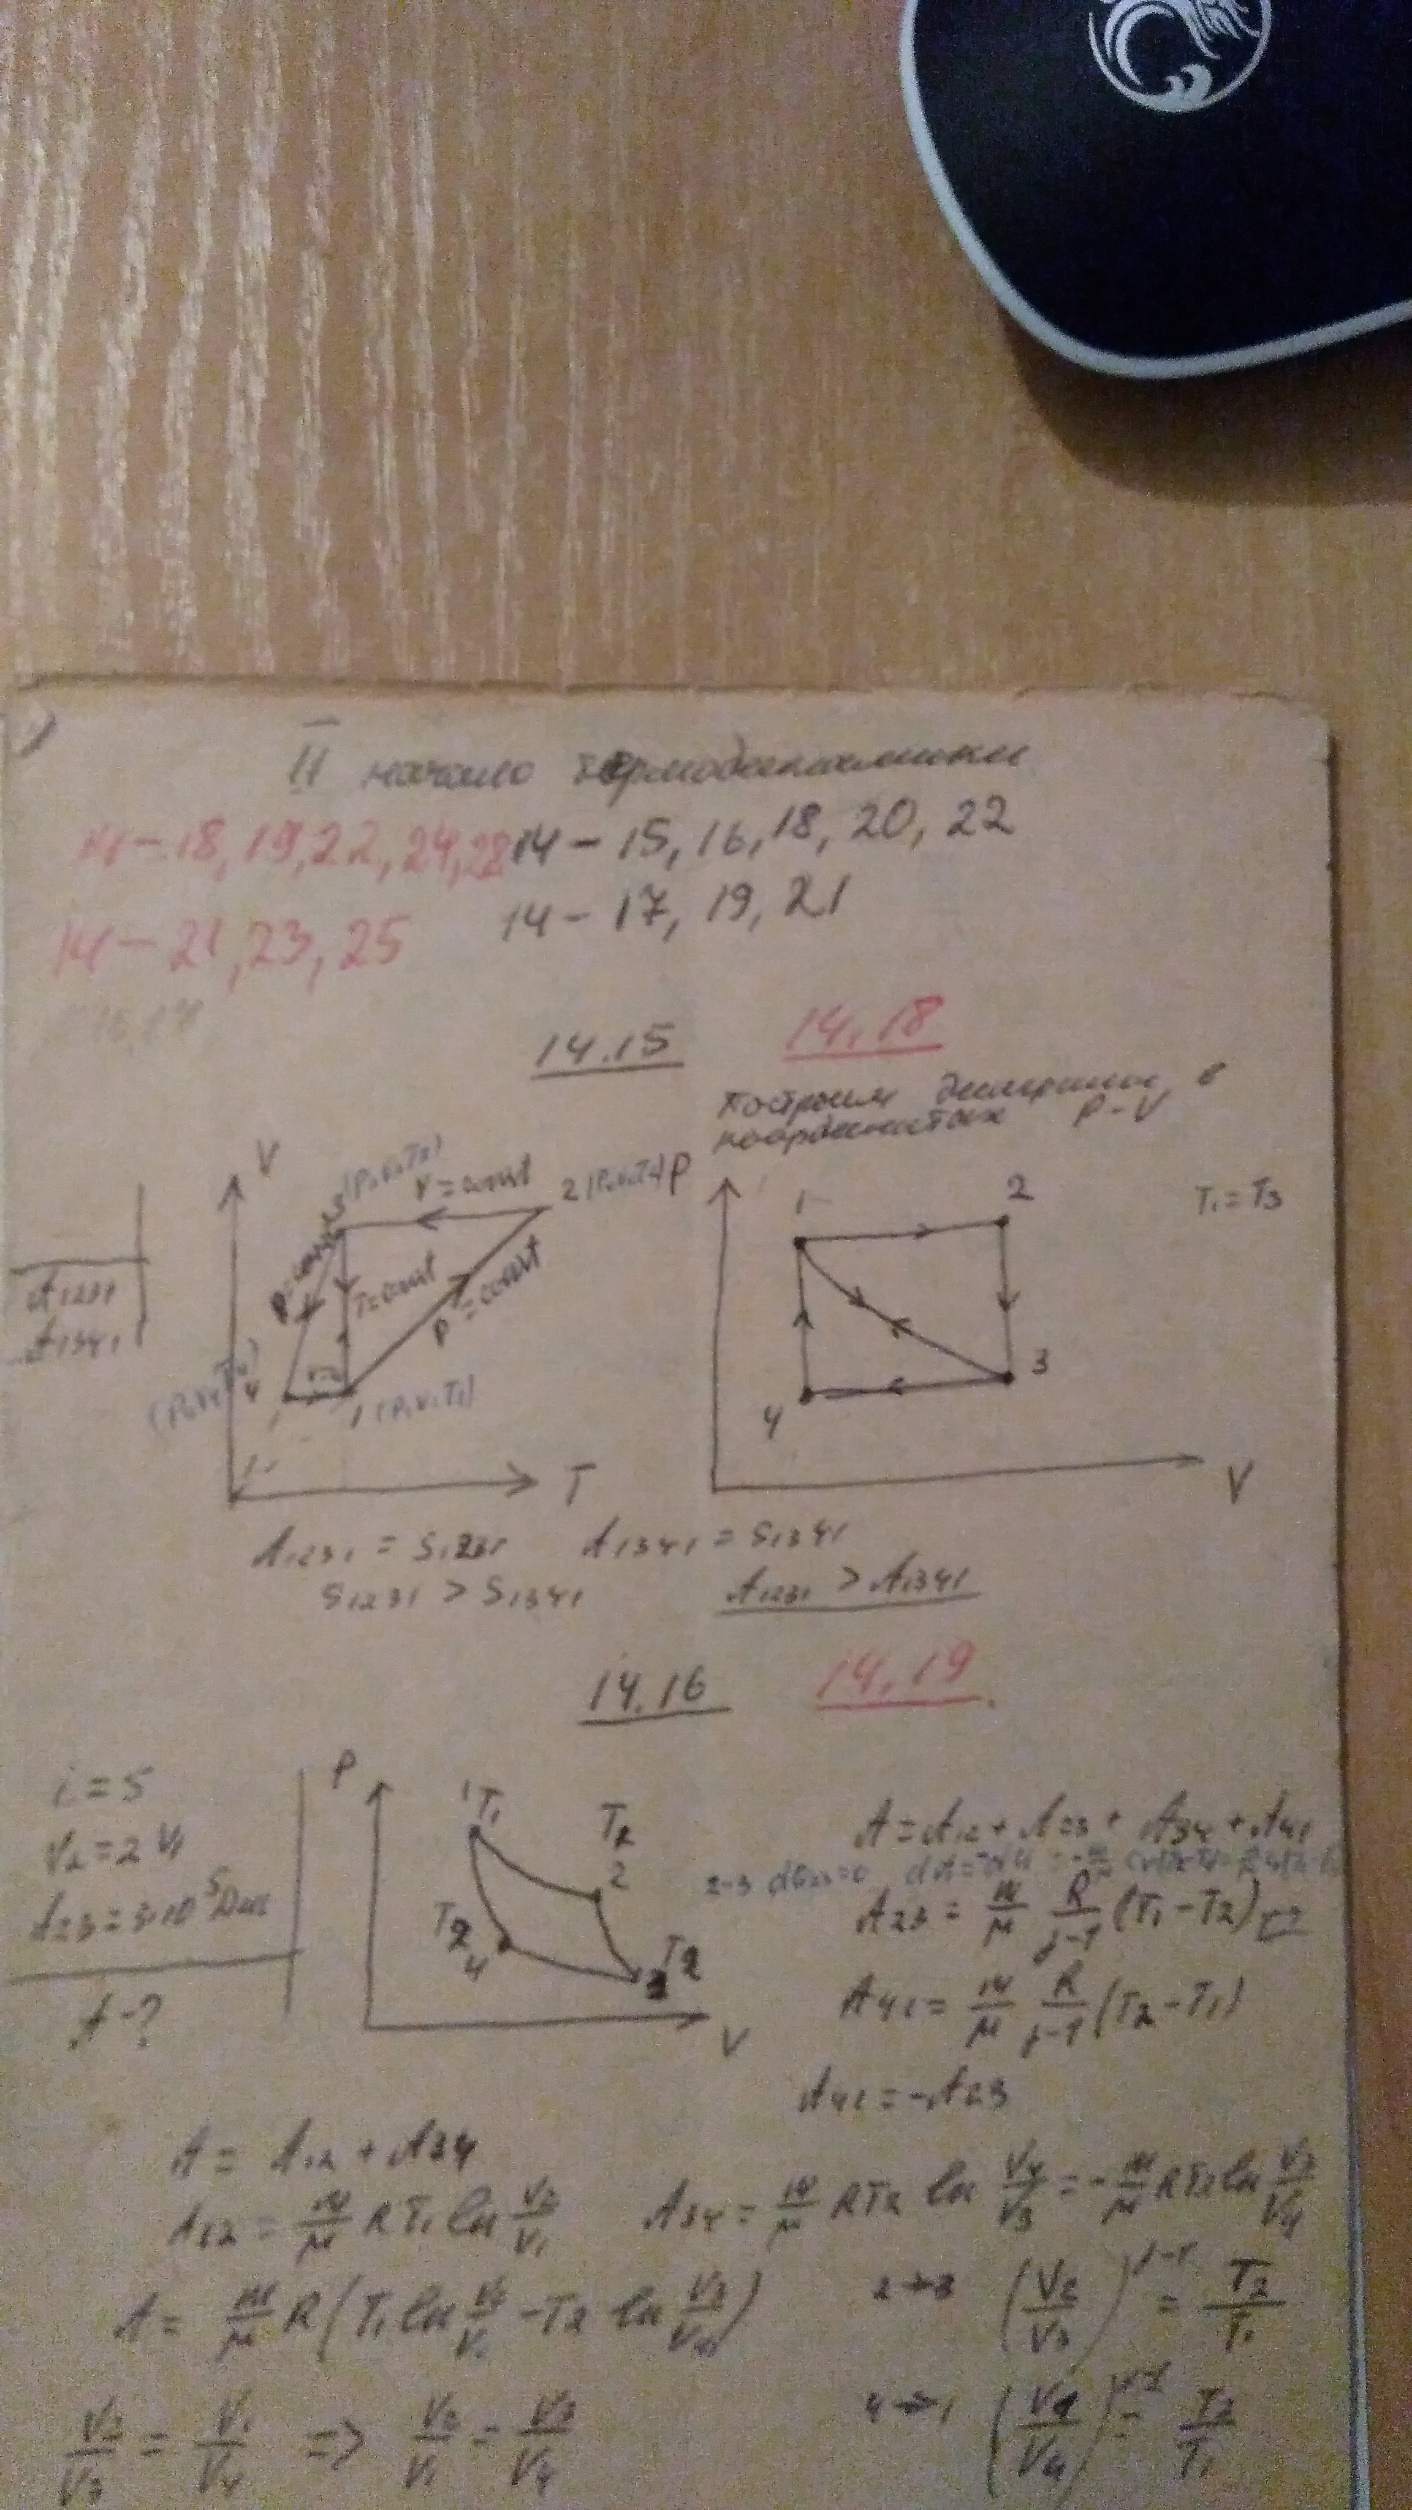 II начало термодинамики
14 – 18, 19, 22, 24, 28 14 – 15, 16, 18, 20, 22
14 – 21, 23, 25 14 – 17, 19, 21
14.15 14.18
Построим диаграмму в
координатах P – V
V
3 (P₂V₂T₁)
V = const
2
P
1
2
T₁ = T₃
A₁₂₃₁
A₁₃₄₁
T = const
P = const
4
1 (P₁V₁T₁)
4
3
T
V
A₁₂₃₁ = S₁₂₃₁ A₁₃₄₁ = S₁₃₄₁
S₁₂₃₁ > S₁₃₄₁ A₁₂₃₁ > A₁₃₄₁
14.16 14.19
i = 5
V₂ = 2V₁
A₂₃ = 3·10⁵ Дж
A – ?
P
1 T₁
T₂
2
T₂
4
3 T₂
V
A = A₁₂ + A₂₃ + A₃₄ + A₄₁
2-3 dQ₂₃ = 0
A₂₃ = m/μ R/(γ-1) (T₁ – T₂)
A₄₁ = m/μ R/(γ-1) (T₂ – T₁)
A₄₁ = -A₂₃
A = A₁₂ + A₃₄
A₁₂ = m/μ RT₁ ln V₂/V₁ A₃₄ = m/μ RT₂ ln V₄/V₃ = - m/μ RT₂ ln V₃/V₄
A = m/μ R (T₁ ln V₂/V₁ – T₂ ln V₃/V₄) 2→3 (V₂/V₃)^(γ-1) = T₂/T₁
V₂/V₃ = V₁/V₄ => V₂/V₁ = V₃/V₄ 4→1 (V₁/V₄)^(γ-1) = T₂/T₁